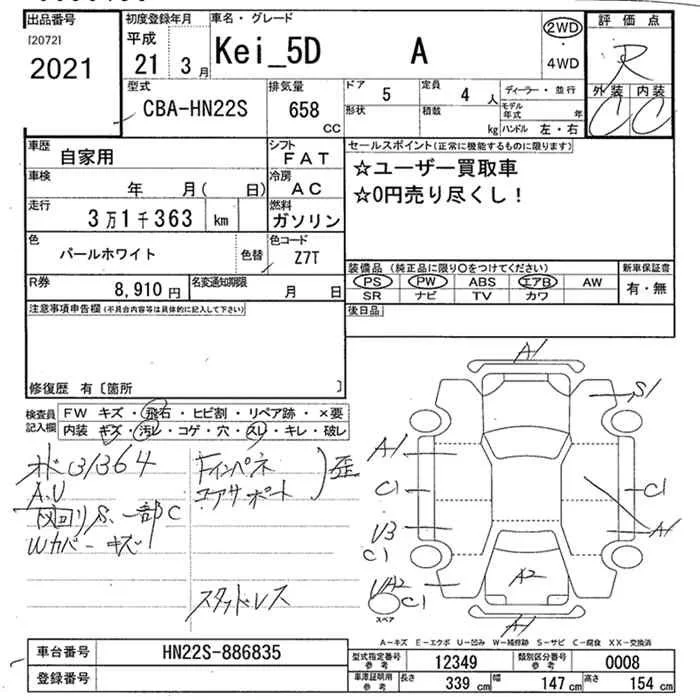 出品番号
[2072]
2021
初度登録年月
平成
21 3月
車名・グレード
Kei_5D A
2WD
・
4WD
評価点
R
外装 内装
C C
型式
CBA-HN22S
排気量
658
CC
ドア
5
定員
4 人
形状
積載
kg
ディーラー・並行
モデル
年式 年
ハンドル 左・右
車歴
自家用
シフト
FAT
車検
年 月( 日)
冷房
AC
走行
3万1千363 km
燃料
ガソリン
色
パールホワイト
色替
色コード
Z7T
R券
8,910円
名変通知期限
月 日
セールスポイント(正常に機能するものに限ります)
☆ユーザー買取車
☆0円売り尽くし!
装備品 (純正品に限り〇をつけてください)
PS PW ABS エアB AW
SR ナビ TV カワ
新車保証書
有・無
後日品
注意事項申告欄(不具合内容等は具体的に記入して下さい)
修復歴 有〔箇所 〕
検査員
記入欄
FW キズ・飛石・ヒビ割・リペア跡・×要
内装 キズ・汚レ・コゲ・穴・スレ・キレ・破レ
31364
A.U
一部C
Wカバーキズ
Fインペネ
コアサポート
歪
スタッドレス
A1
S1
A1
C1
C1
U3
A1
C1
UA2
C1
A2
A1
スペア
A-キズ E-エクボ U-凹み W-補修跡 S-サビ C-腐食 XX-交換済
車台番号
HN22S-886835
登録番号
型式指定番号
参考
12349
類別区分番号
参考
0008
車庫証明用
参考
長さ
339 cm
幅
147 cm
高さ
154 cm